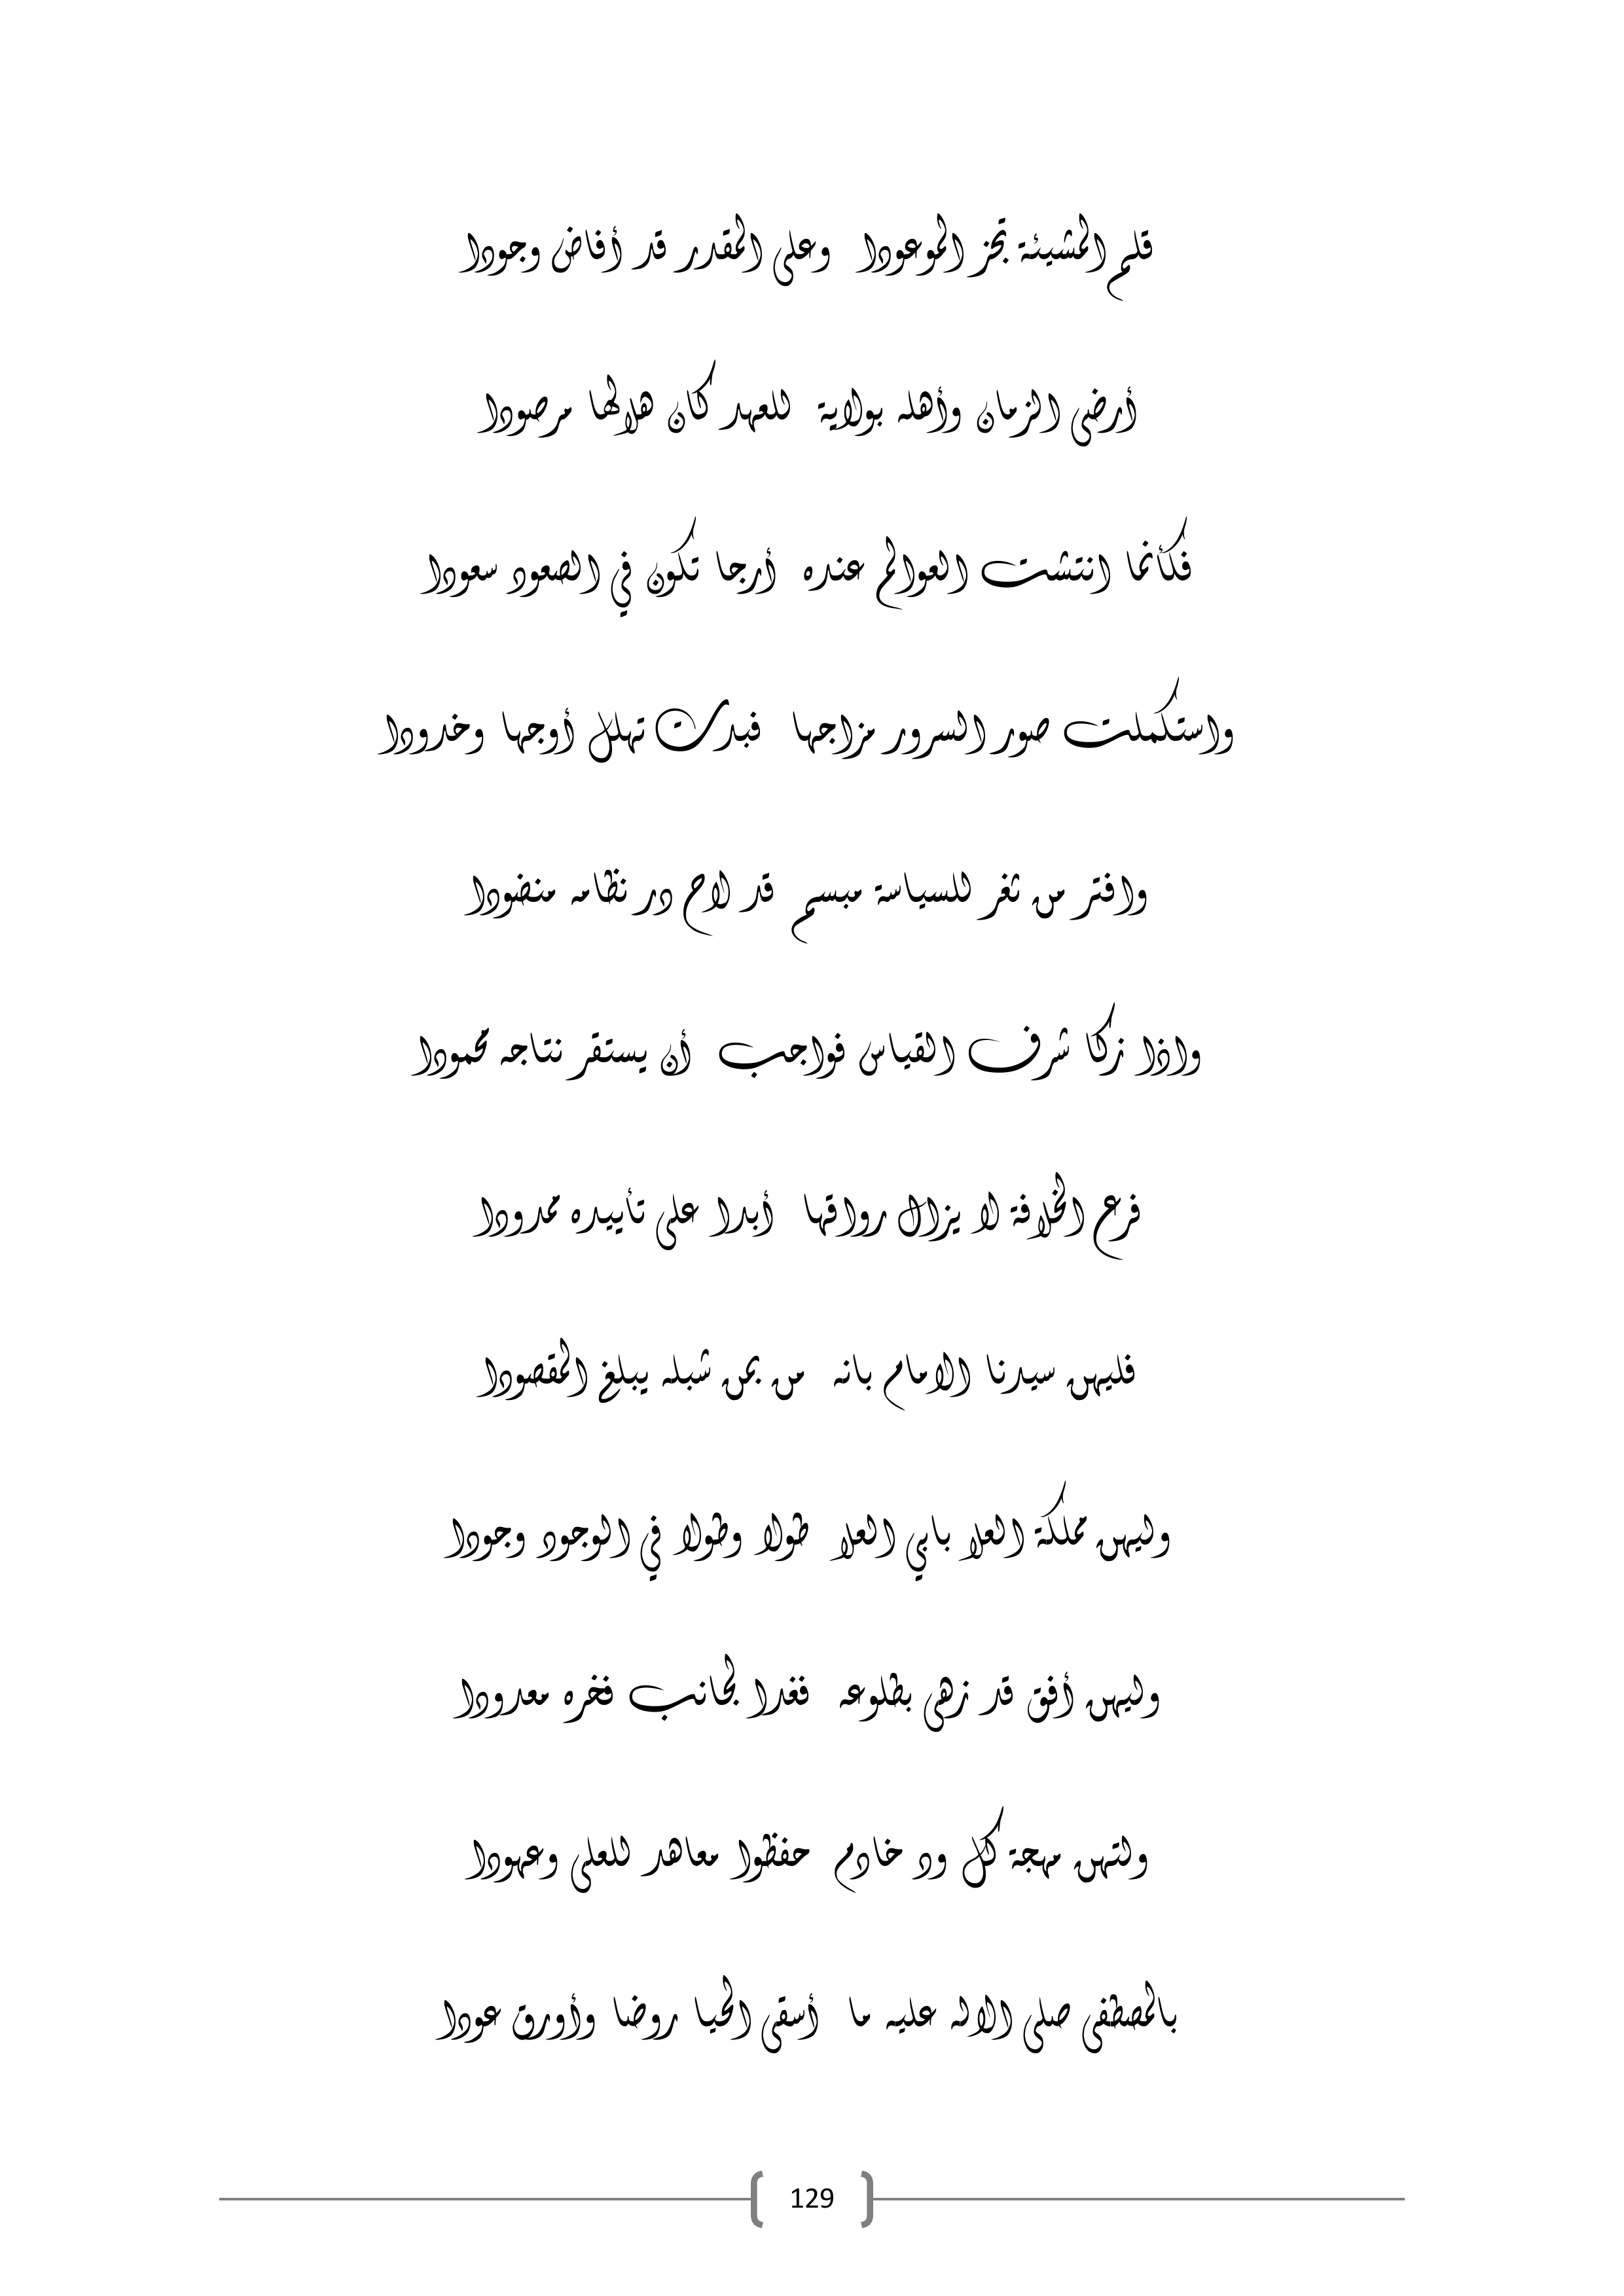 قلم المشيئة تجز الموعودا وعلى المقدر قد أفاض وجودا
أرضى الزمان وأهله بولاية للعهد كان هلالها مرصودا
فكأنما انتشت العوالم عنده أرجا تكون في الصعود سعودا
واستكملت صور السرور مزاجها فبدت تهلل أوجها وخدودا
وافتر من ثغر للسياسة مبسم قد لاح در نظامه منضودا
واذا زكا شرف القياس فواجب أن يستقر نتاجه محمودا
فرع الخلافة لا يزال رواقها أبدا على تأييده ممدودا
فليهن سيدنا الامام بانه من يمن شبله يبلغ المقصودا
وليهن مملكة العلا بابي العلا طولا وطولا في الوجود وجودا
وليهن أفق قد زهى بطلوعه فغدا لجانب فخره معدودا
ولتهن مهجة كل ود خادم حفظوا معاهد للعلى وعهودا
بالمصطفى صلى الاله عليه ما أسقى الحيا روضا وأورق عودا
129